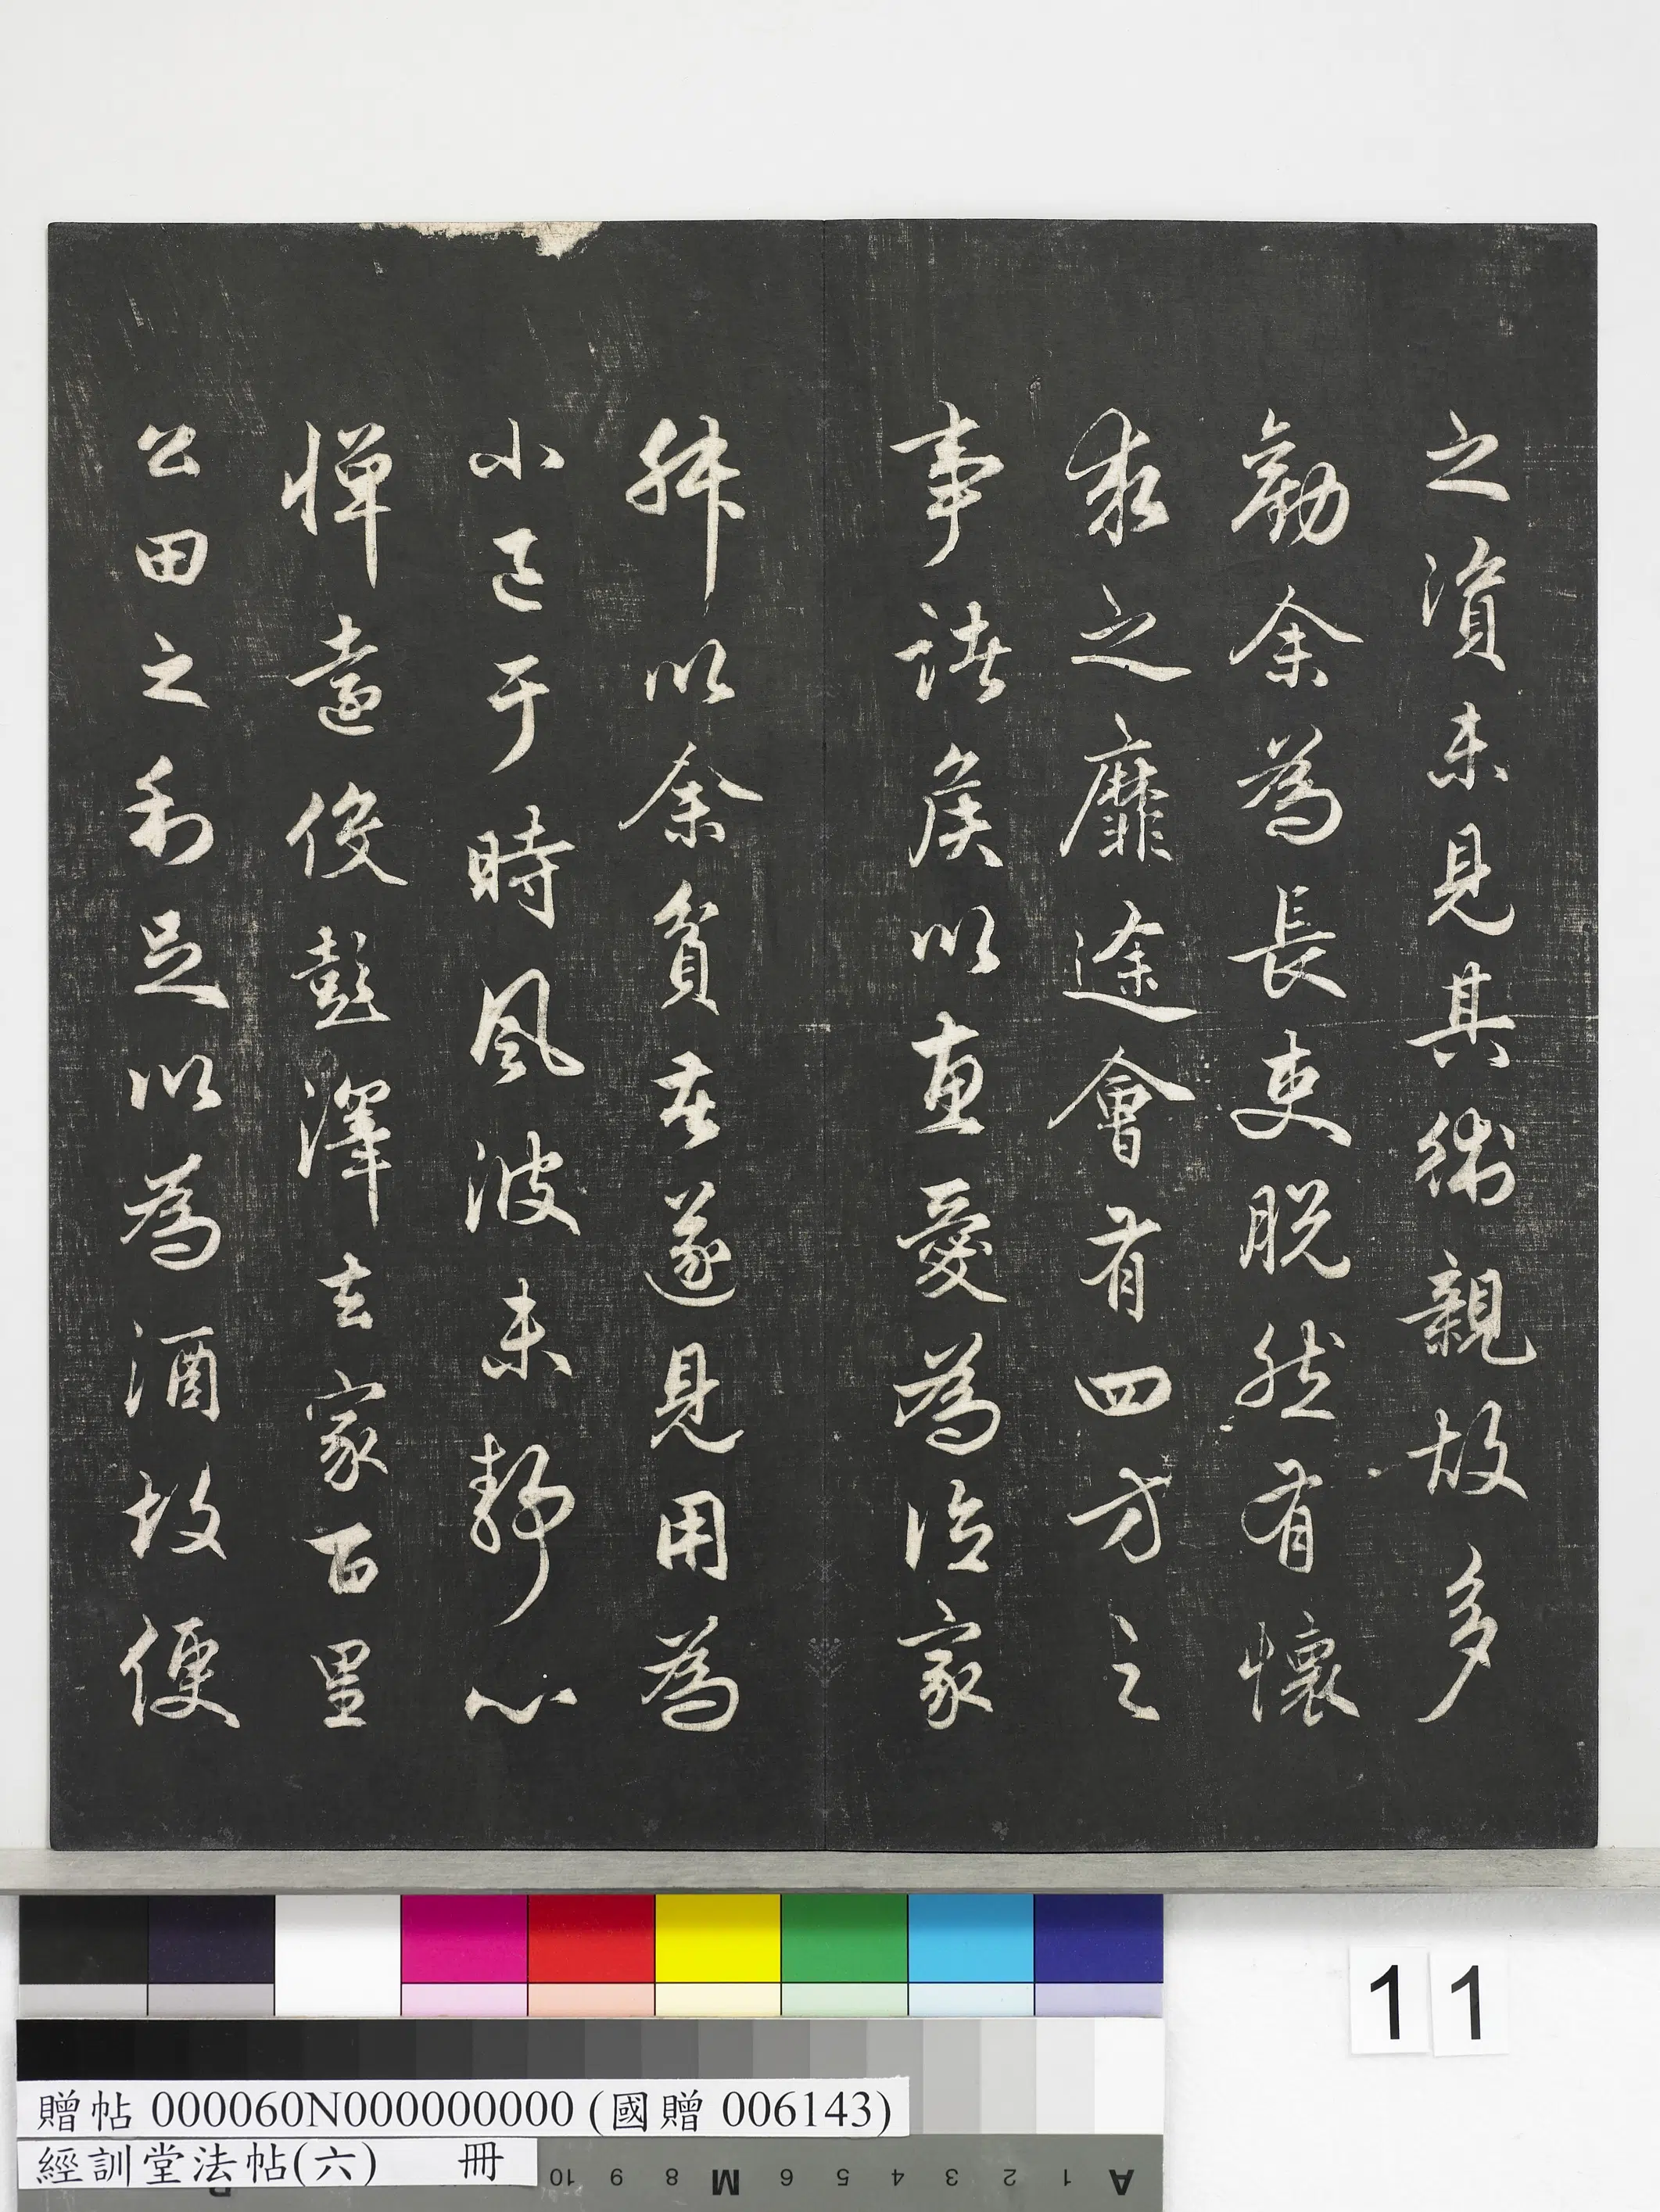 之資未見其術親故多
勸余為長吏脫然有懷
求之靡途會有四方之
事諸侯以惠愛為德家
叔以余貧苦遂見用為
小邑于時風波未靜心
憚遠役彭澤去家百里
公田之利足以為酒故便
11
贈帖 000060N000000000 (國贈 006143)
經訓堂法帖(六) 冊
A 1 2 3 4 5 6 M 8 9 10